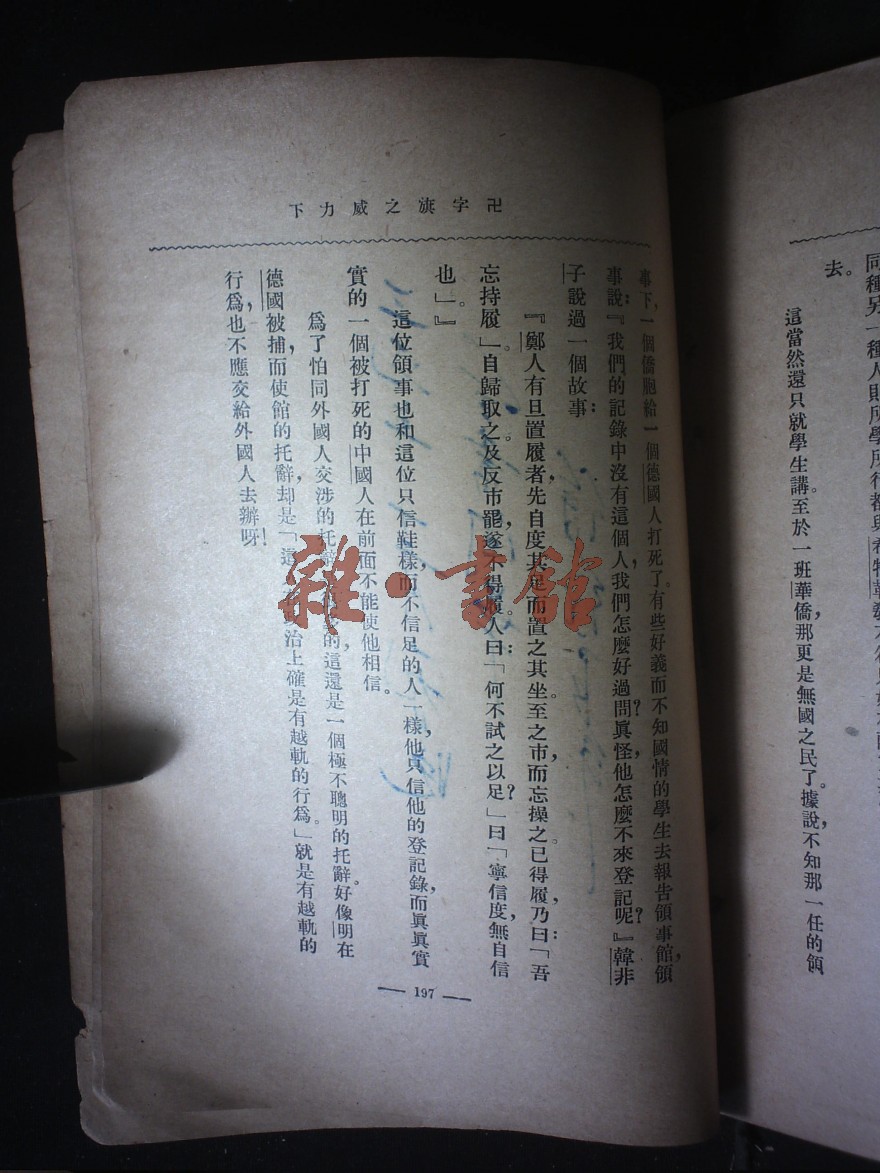 同種另一種人則所學所行都與希特
去。
這當然還只就學生講。至於一班華僑，那更是無國之民了。據說不知那一任的領
卍字旗之威力下
事下，一個僑胞給一個德國人打死了。有些好義而不知國情的學生去報告領事館，領
事說：『我們的記錄中沒有這個人，我們怎麼好過問？眞怪，他怎麼不來登記呢？』韓非
子說過一個故事：
『鄭人有旦置履者，先自度其足而置之其坐。至之市，而忘操之。已得履，乃曰：「吾
忘持履」。自歸取之。及反，市罷，遂不得履。人曰：「何不試之以足？」曰「寧信度，無自信
也」。』
這位領事也和這位只信鞋樣而不信足的人一樣，他只信他的登記錄，而眞眞實
實的一個被打死的中國人在前面不能使他相信。
爲了怕同外國人交涉的托 的，這還是一個極不聰明的托辭。好像明在
德國被捕，而使館的托辭却是「這 政治上確是有越軌的行爲。」就是有越軌的
行爲，也不應交給外國人去辦呀！
197
雜·書館